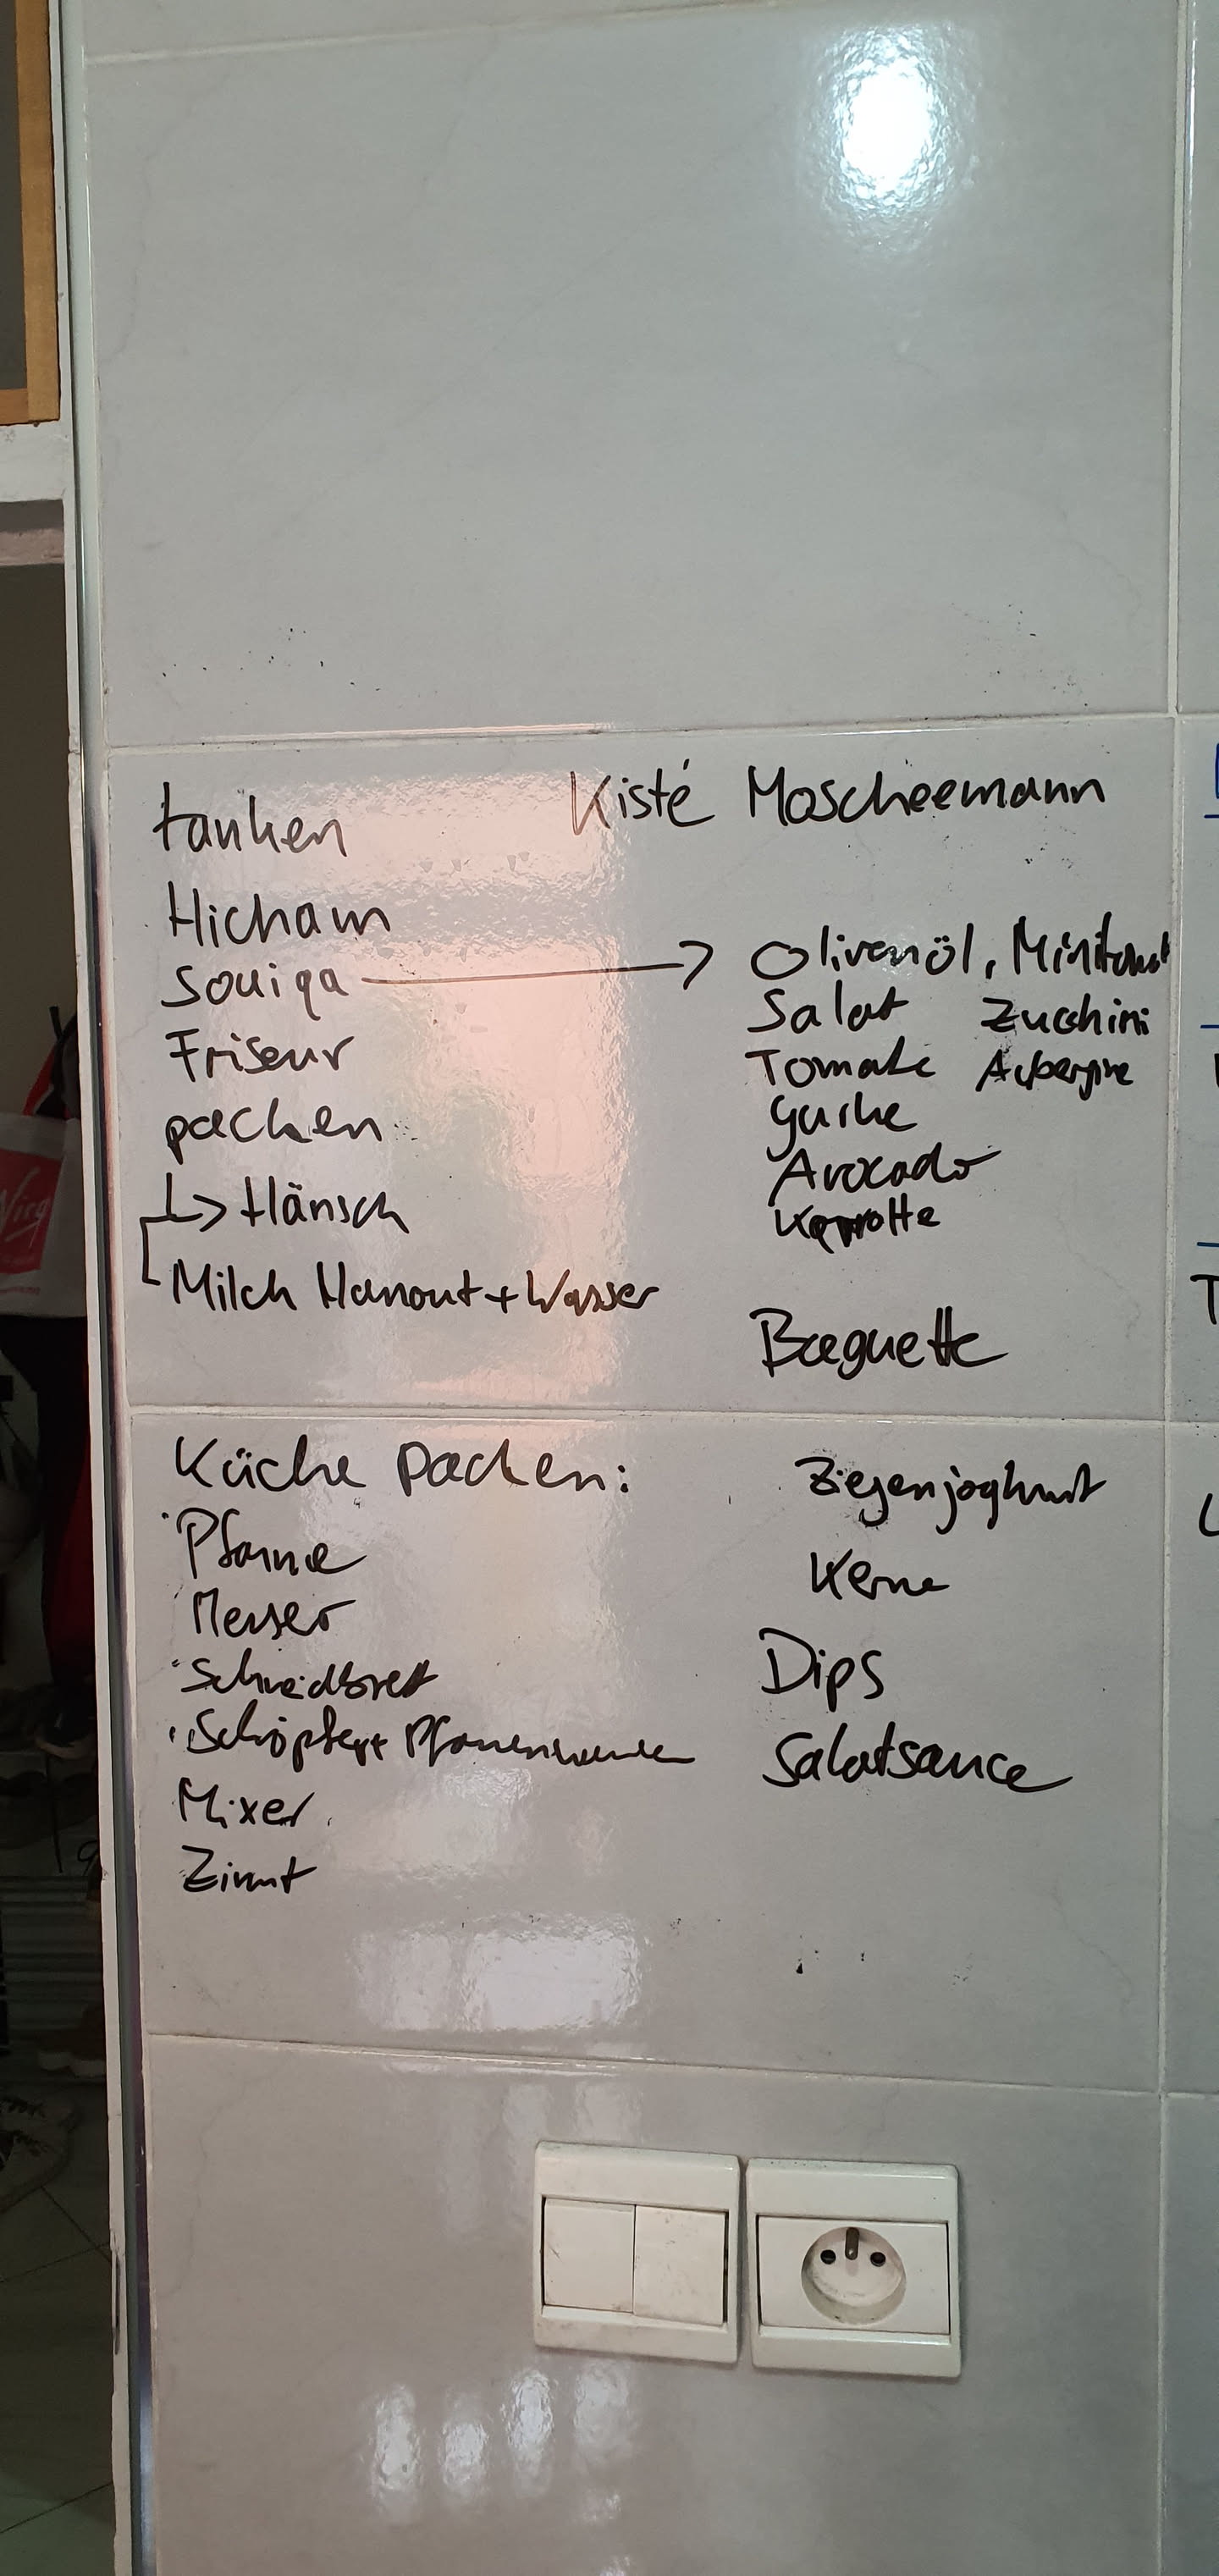 tanken
Hicham
souiqa →
Friseur
packen
↳ Hänsch
Milch Hanout + Wasser
Kiste Moscheemann
Olivenöl,
Salat Zucchini
Tomate Aubergine
Gurke
Avocado
Karotte
Baguette
Küche packen:
Pfanne
Messer
Schneidbrett
Schöpfer + Pfannenwender
Mixer
Zimt
Ziegenjoghurt
Kerne
Dips
Salatsauce